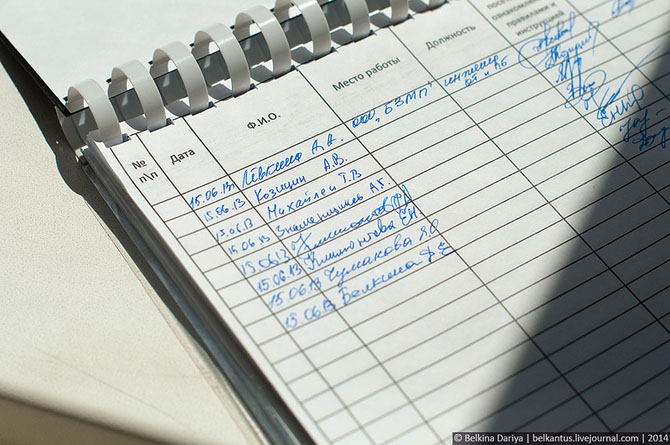 № п\п Дата Ф.И.О. Место работы Должность ознакомлен правилами и инструкцией
15.06.13г А.А. ООО „БЗМП" инженер ОТ и ПБ
15.06.13 Козицин А.В.
15.06.13 Михайлец Т.В.
15.06.13 Знаменщиков А.Г.
15.06.13
15.06.13 Климонтова Е.Н.
15.06.13 Чумакова Я.О
15.06.13 Белкина Д.Е.
© Belkina Dariya | belkantus.livejournal.com | 2014